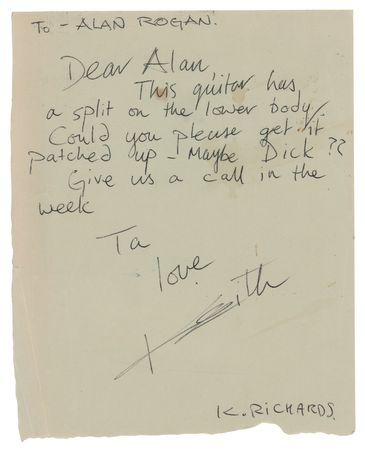 To - ALAN ROGAN.
Dear Alan,
This guitar has
a split on the lower body.
Could you please get it
patched up - Maybe Dick ??
Give us a call in the
week
Ta
love
Keith
K. RICHARDS.